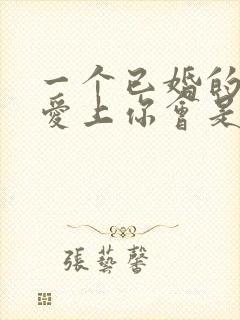 一个已婚的
愛上你會是
張藝馨